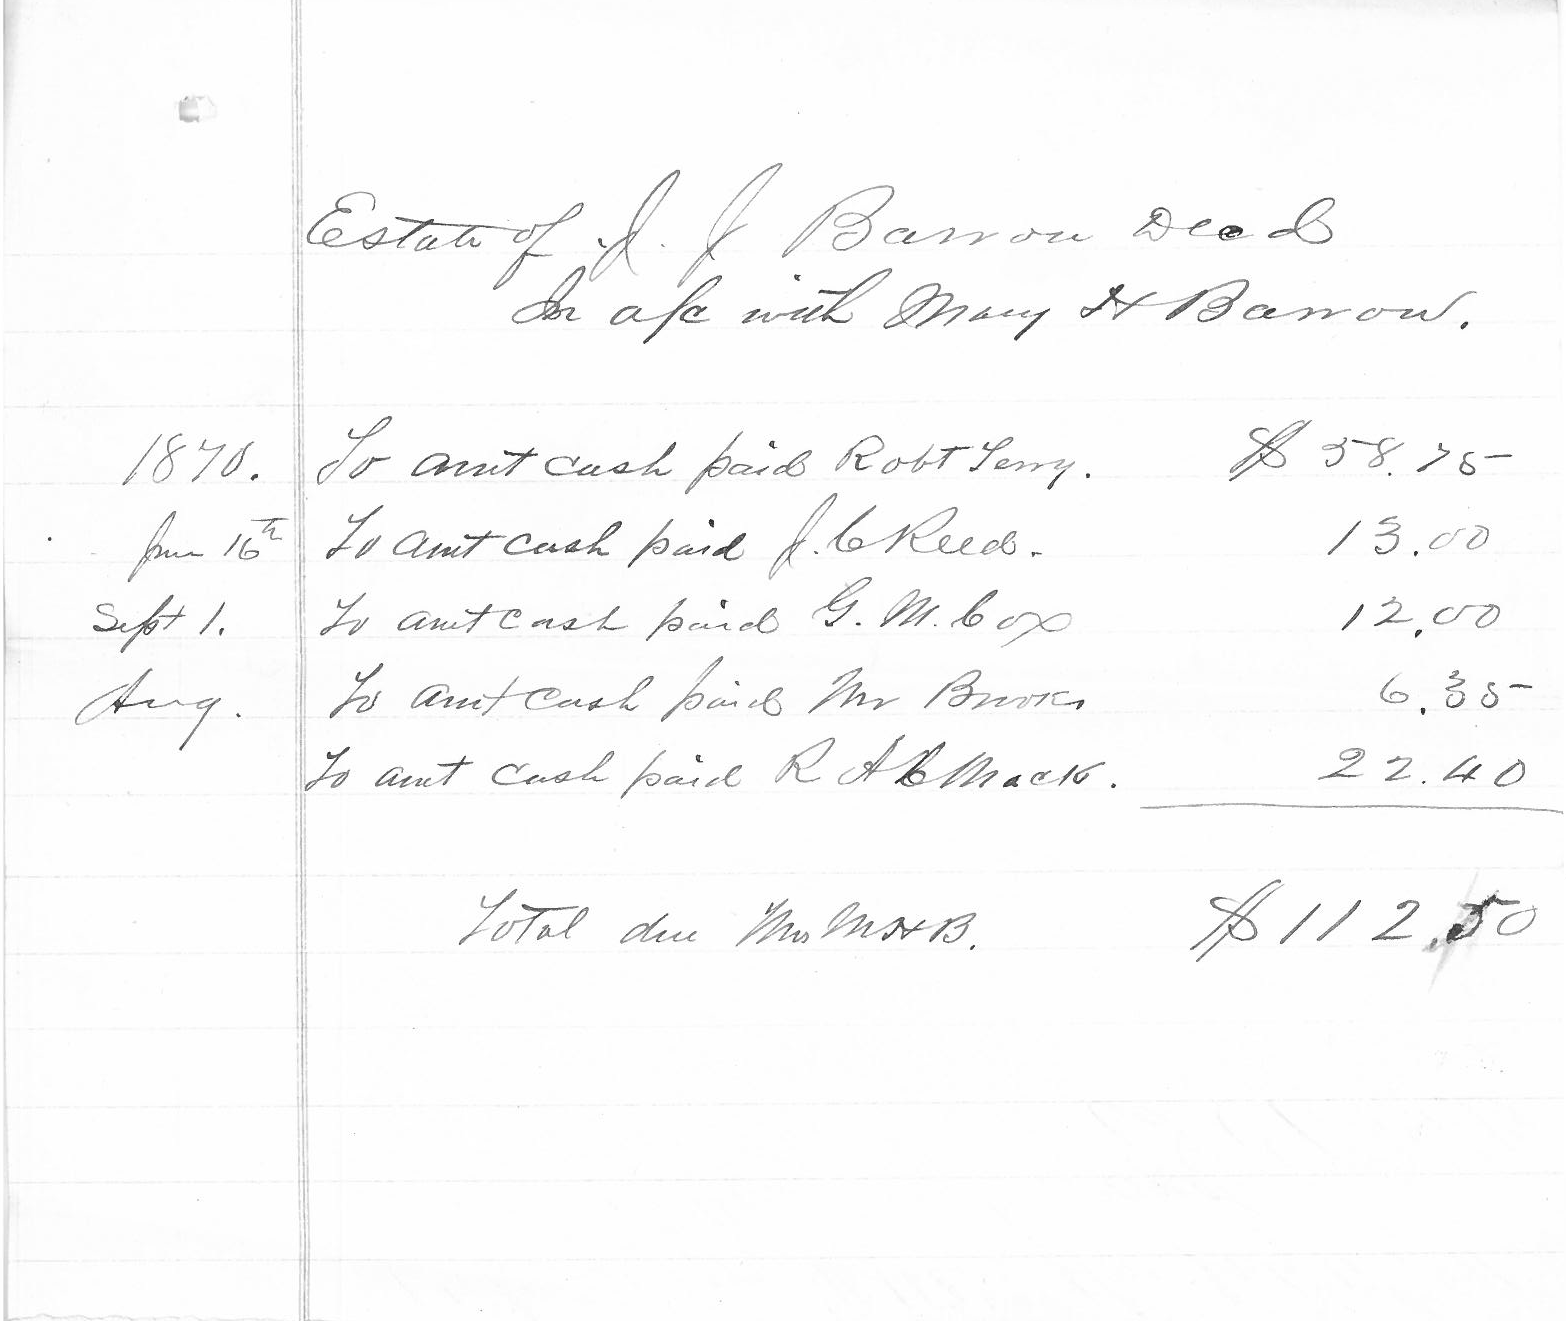 Estate of J. J Barrow Decd
In a/c with Mary H Barrow.
1870. To amt cash paid Robt Terry. $58.75
Jun 16th To amt cash paid J. C Reed. 13.00
Sept 1. To amt cash paid G. M. Cox 12.00
Aug. To amt cash paid Mr Brooks 6.35
To amt cash paid R A C Mack. 22.40
Total due Mrs M H B. $112.50